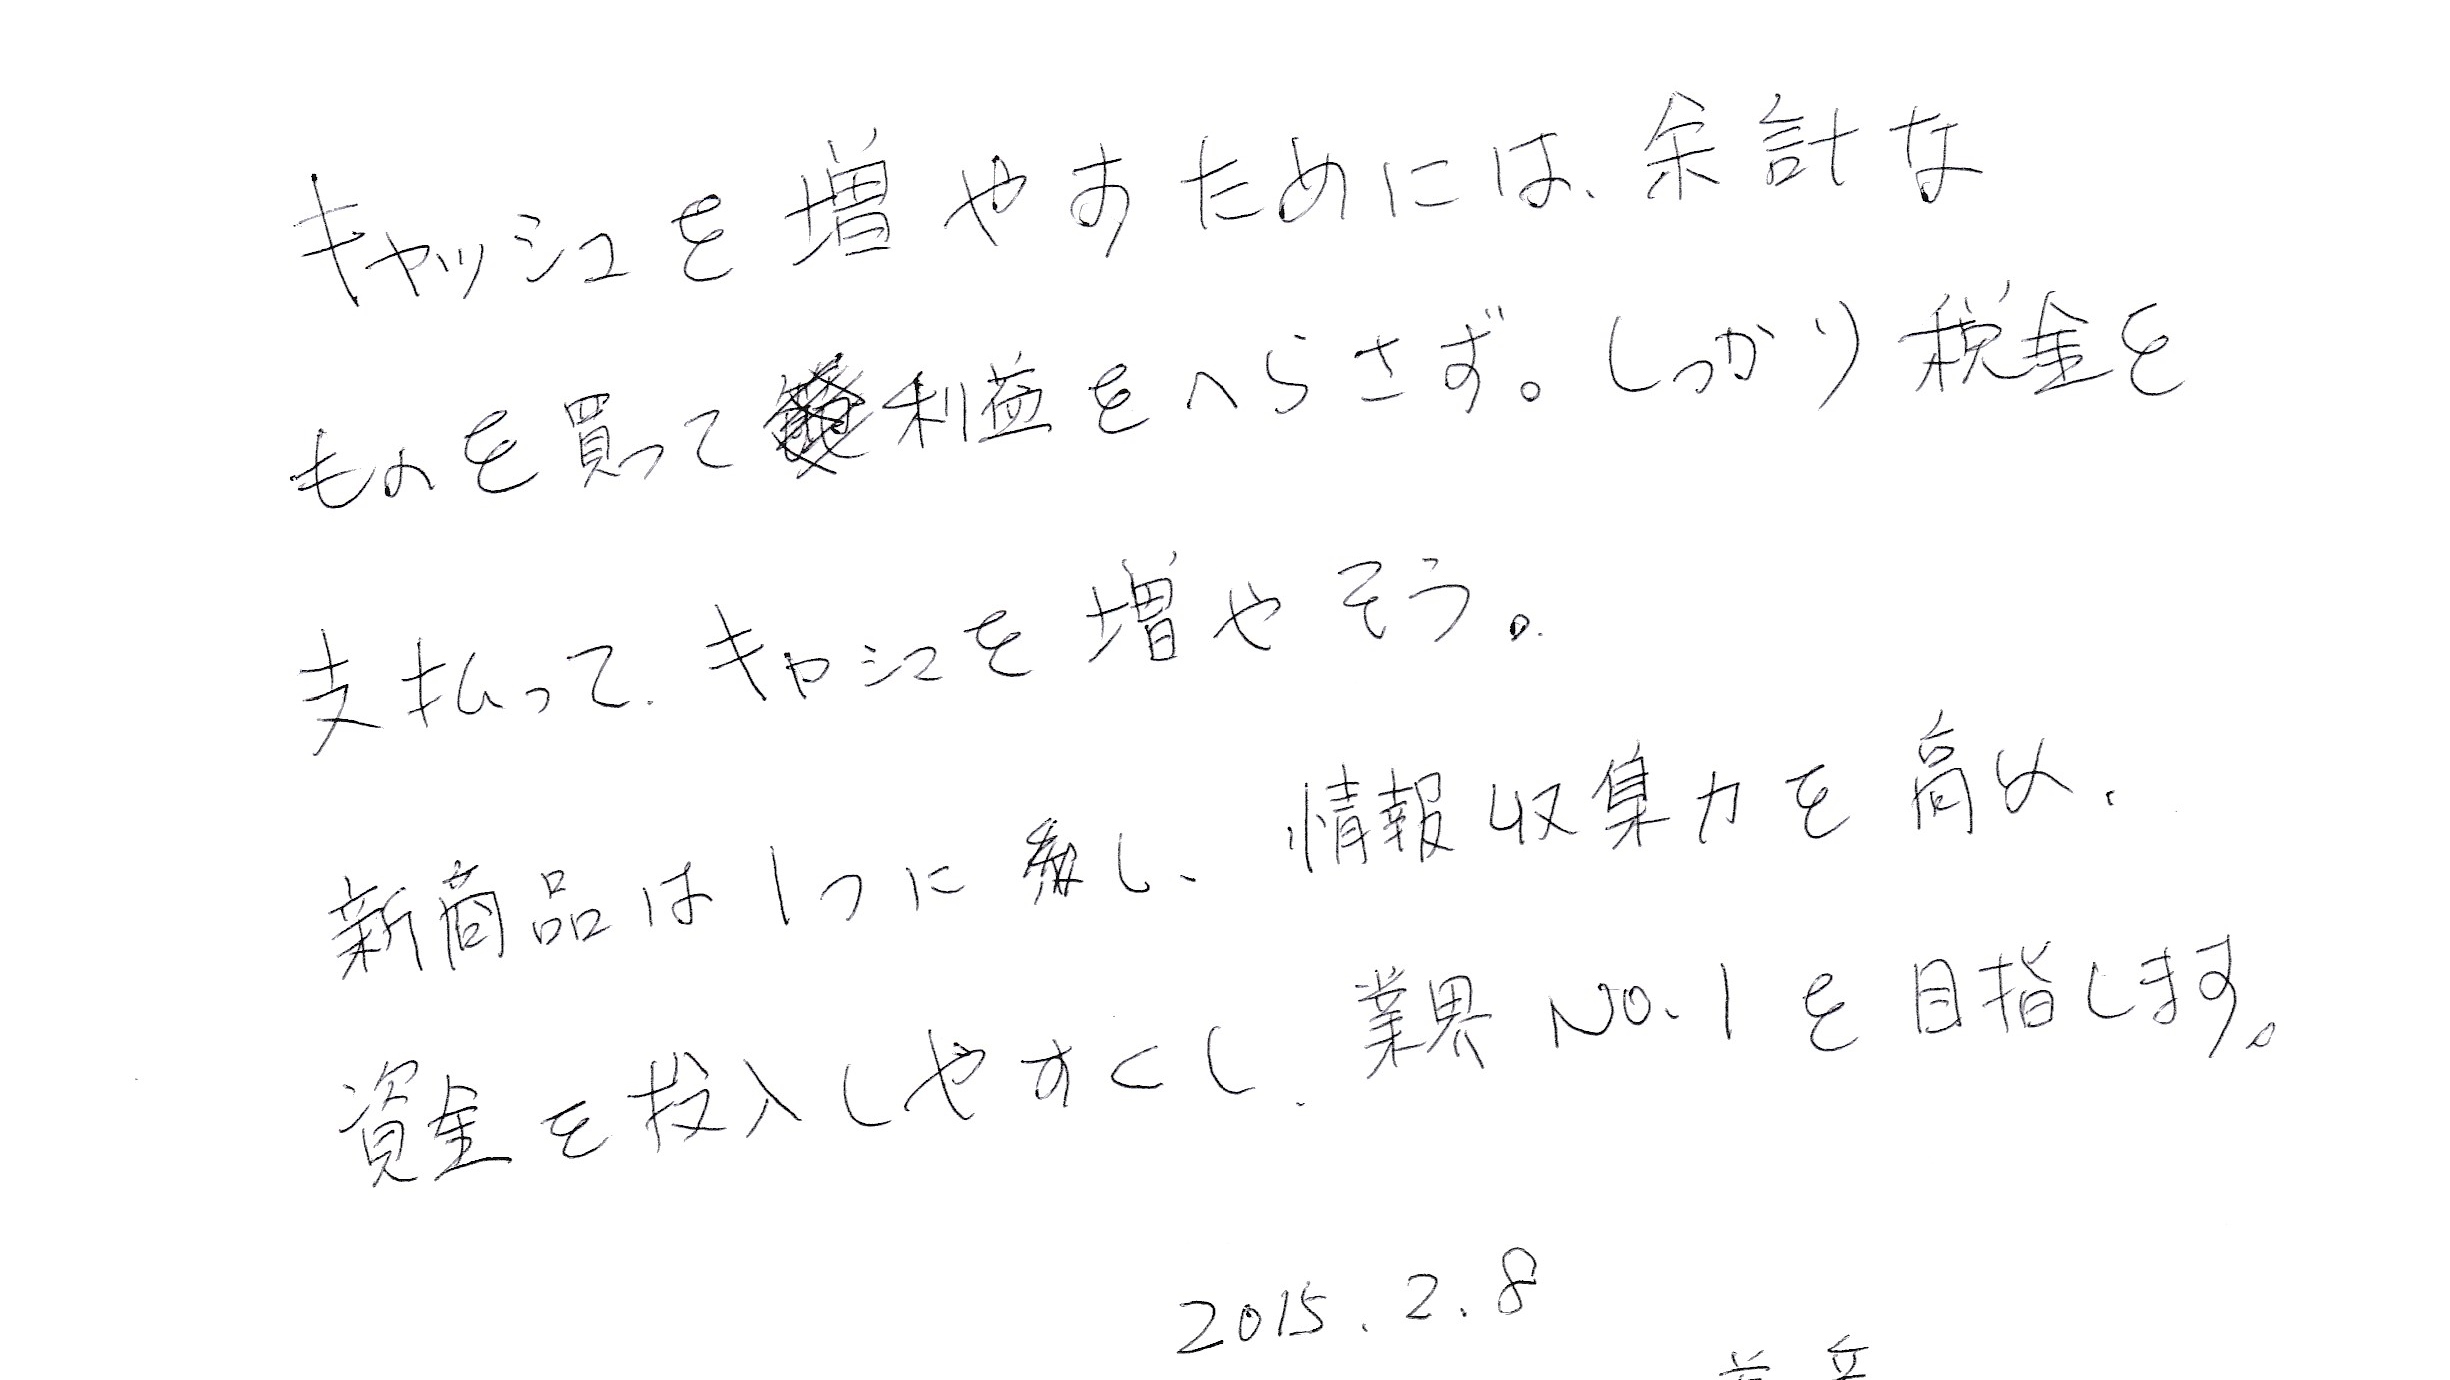 キャッシュを増やすためには、余計な
ものを買って利益をへらさず。しっかり税金を
支払って、キャシュを増やそう。
新商品は1つにし、情報収集力を高め、
資金を投入しやすくし、業界No.1を目指します。
2015.2.8